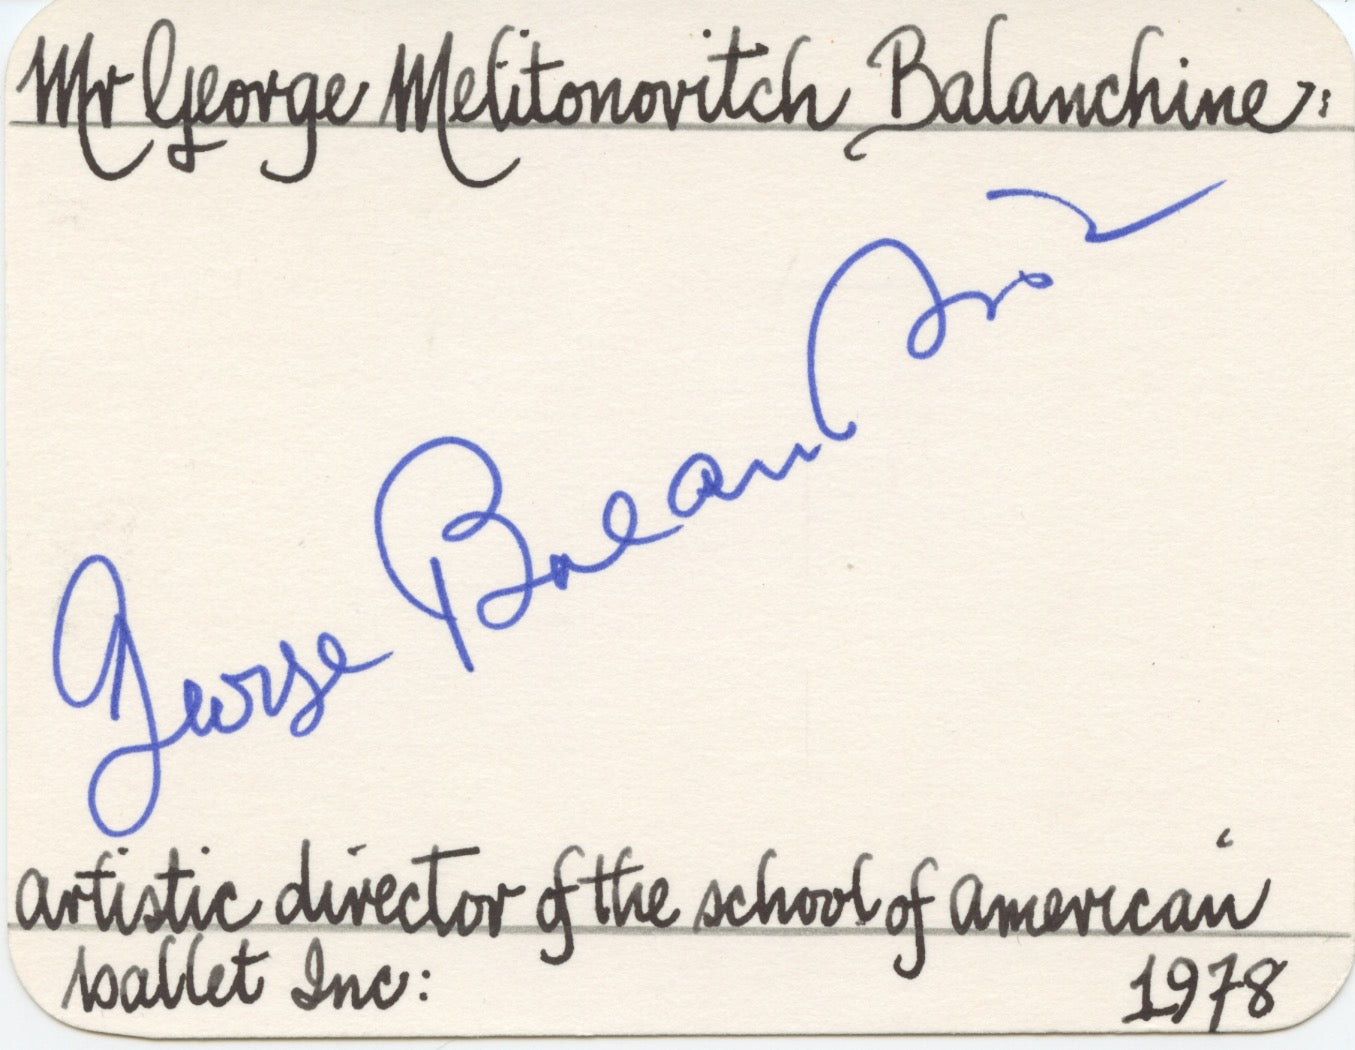 Mr George Melitonovitch Balanchine :
George Balanchine
artistic director of the school of american
ballet Inc:
1978